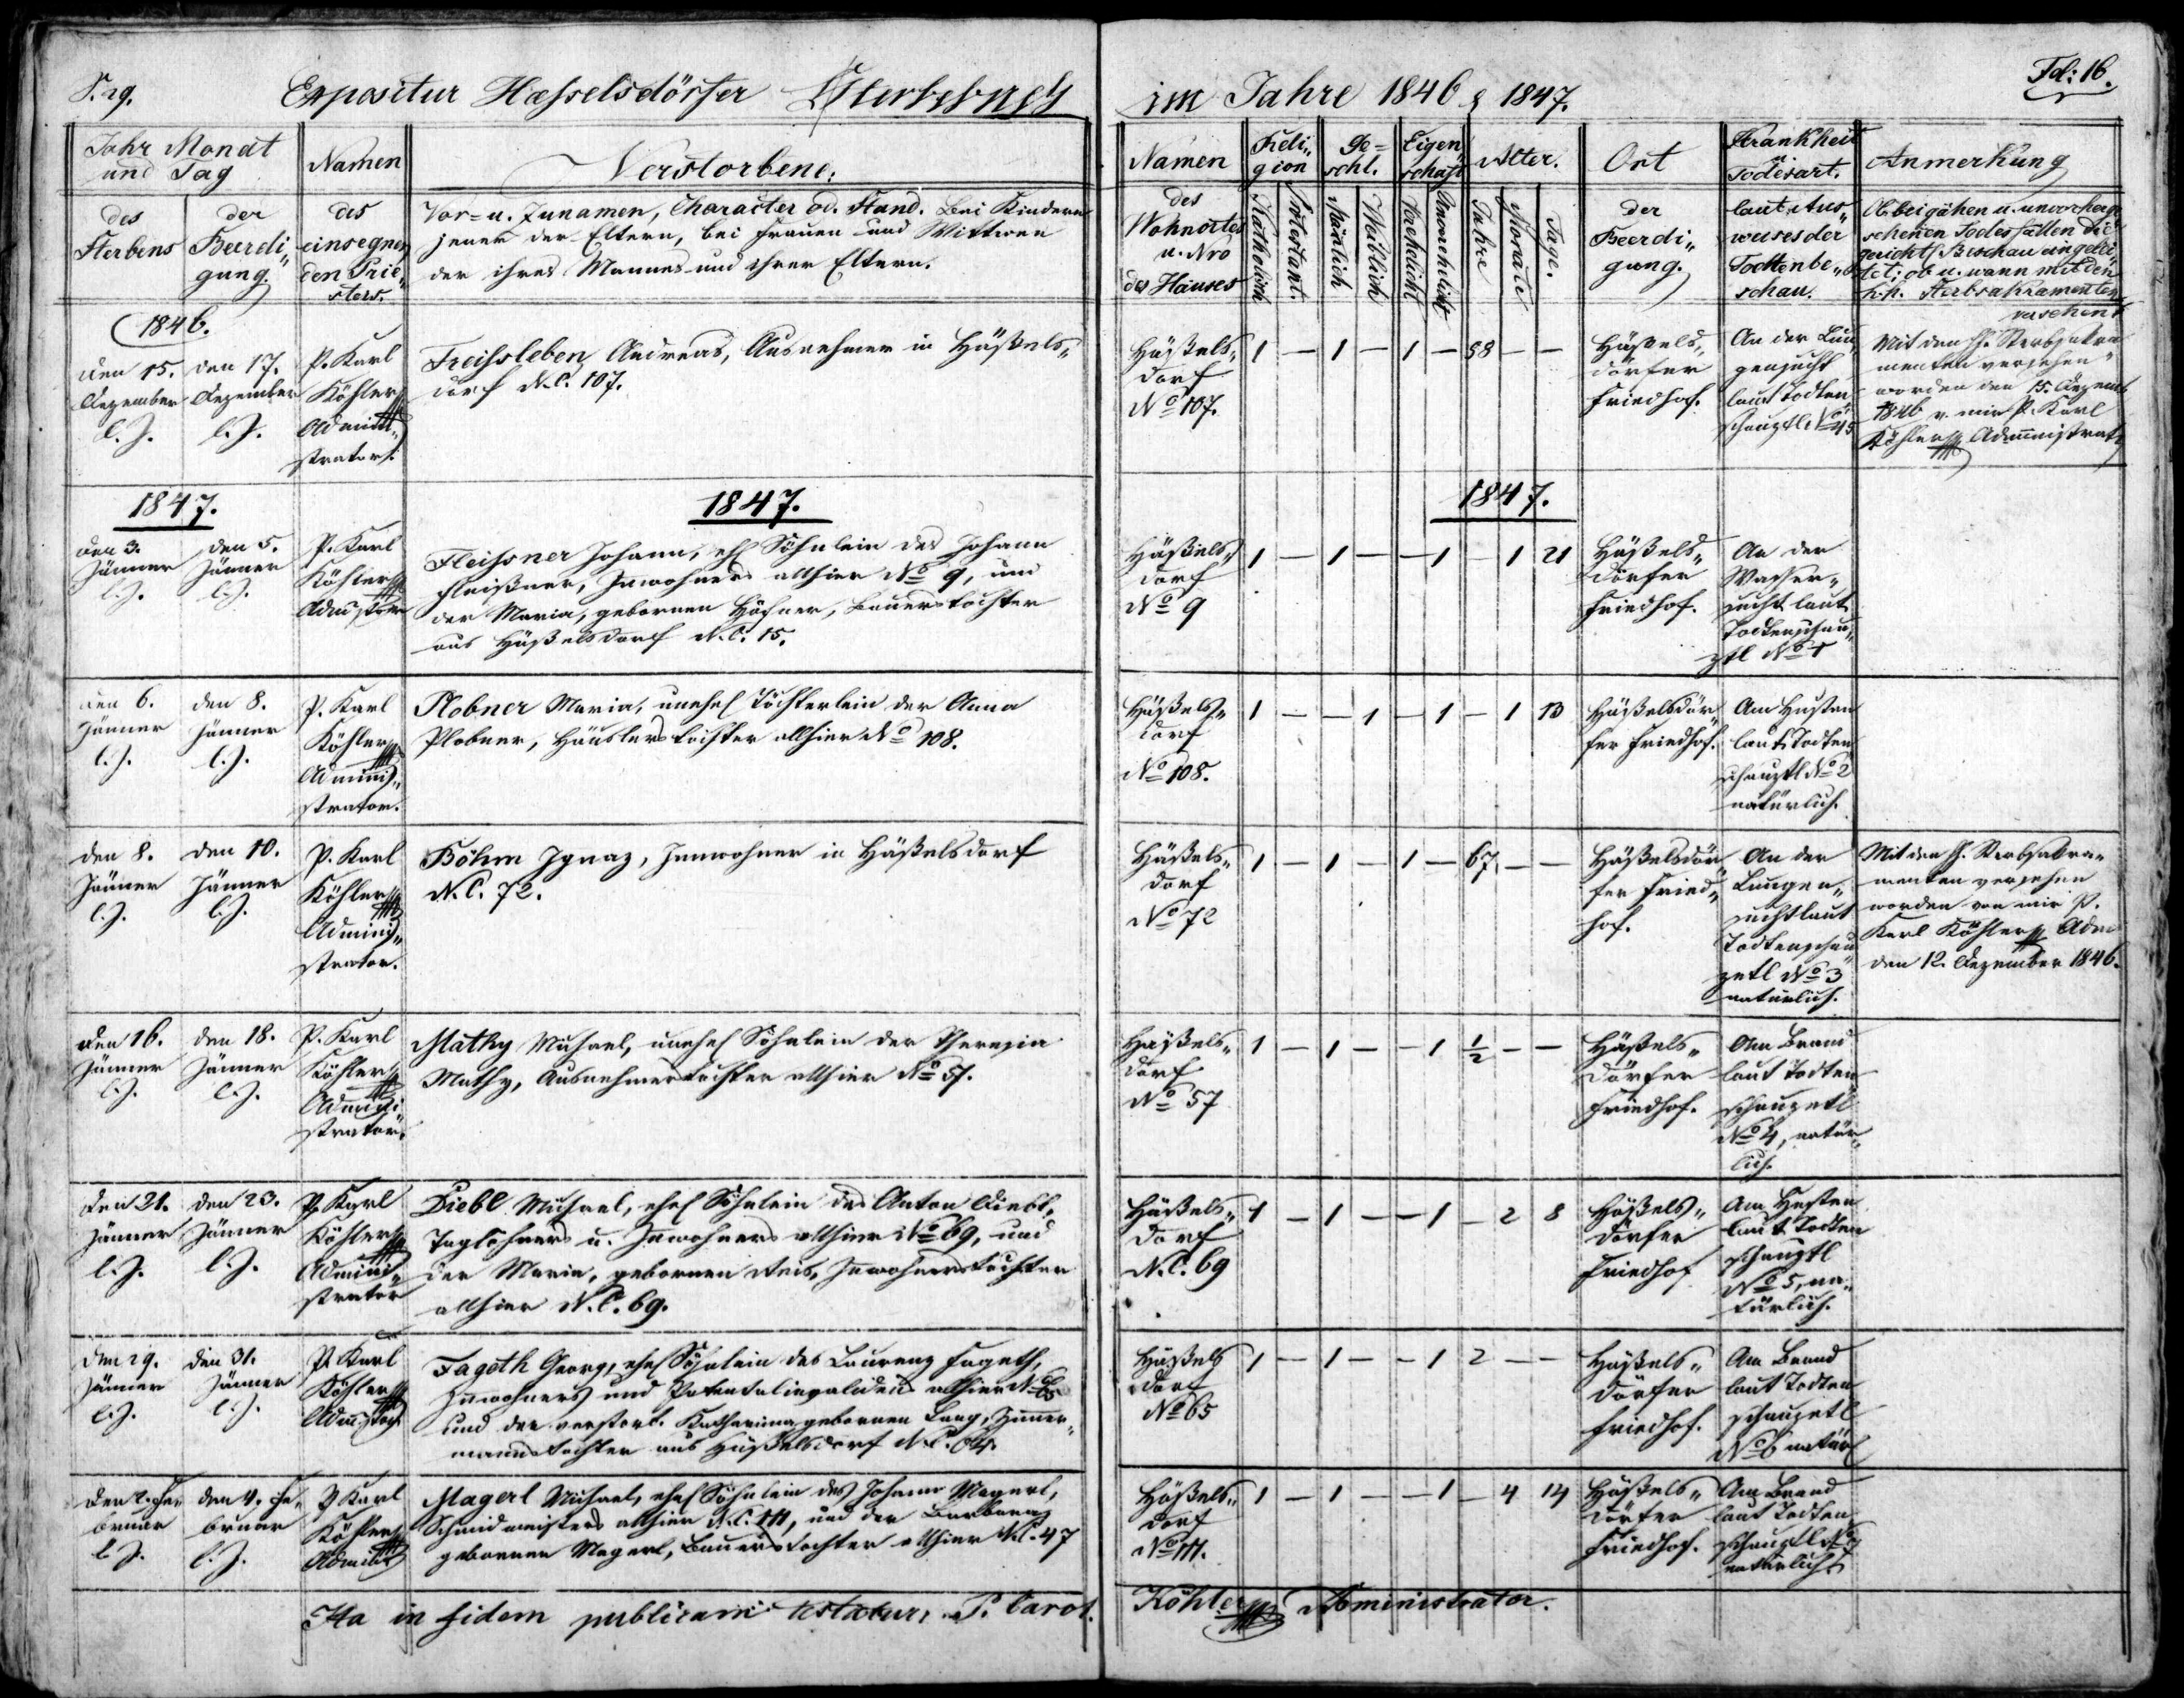 S. 29.
Expositur Hæsselsdörfer Sterbebuch
im Jahre 1846 & 1847.
Fol: 16.
Jahr Monat und Tag
des Sterbens
der Beerdi„
gung.
Namen
des
einsegnen
den Prie„
sters.
Verstorbene.
Vor= u. Zunamen, Character od. Stand. Bei Kindern
jener der Eltern, bei Frauen und Wittwen
der ihres Mannes und ihrer Eltern.
Namen
des
Wohnortes
u. Nro
des Hauses
Reli„
gion
Katholisch
Protestant.
Ge=
schl.
Mänlich
Weiblich
Eigen„
schaft
Verehelicht
Unverehelicht
Alter.
Jahre
Monate
Tage.
Ort
der
Beerdi„
gung.
Krankheit
u.
Todesart.
laut Aus„
weises der
Todtenbe„
schau.
Anmerkung
Ob bei gähen u. unvorherge
sehenen Todesfällen die
gerichtl Beschau eingelei„
tet; ob u. wann mit den
h.h. Sterbsakramenten
versehen?
1846.
den 15.
Dezember
l. J.
den 17.
Dezember
l. J.
P. Karl
Köhler
Admini„
strator.
Freissleben Andreas, Ausnehmer in Häßels„
dorf N.C. 107.
Häßels„
dorf
No 107.
1 — 1 — 1 — 58 — —
Häßels„
dörfer
Friedhof.
An der Lun„
gensucht
laut Todten„
schauztl. No 45
Mit den hh. Sterbsakra
menten versehen
worden den 15. Dezemb
1846 v. mir P. Karl
Köhler Administrat
1847.
1847.
1847.
den 3.
Jänner
l. J.
den 5.
Jänner
l. J.
P. Karl
Köhler
Admstor
Fleissner Johann, ehel Söhnlein des Johann
Fleißner, Inwohners allhier No 9, und
der Maria, gebornen Höfner, Bauerstochter
aus Häßelsdorf N.C. 15.
Häßels„
dorf
No 9
1 — 1 — — 1 — 1 21
Häßels„
dörfer
Friedhof.
An der
Wasser„
sucht laut
Todtenschau„
ztl No 1
den 6.
Jänner
l. J.
den 8.
Jänner
l. J.
P. Karl
Köhler
Admini„
strator.
Plobner Maria, unehel Töchterlein der Anna
Plobner, Häuslerstochter allhier No 108.
Häßels„
dorf
No 108.
1 — — 1 — 1 — 1 13
Häßelsdör„
fer Friedhof.
Am Husten
laut Todten
schauztl No 2
natürlich.
den 8.
Jänner
l. J.
den 10.
Jänner
l. J.
P. Karl
Köhler
Admini„
strator.
Böhm Ignaz, Inwohner in Häßelsdorf
N.C. 72.
Häßels„
dorf
No 72
1 — 1 — 1 — 67 — —
Häßelsdör
fer Fried„
hof.
An der
Lungen„
sucht laut
Todtenschau„
zetl No 3
natürlich.
Mit den hh. Sterbsakra„
menten versehen
worden von mir P.
Karl Köhler Adm
den 12. Dezember 1846.
den 16.
Jänner
l. J.
den 18.
Jänner
l. J.
P. Karl
Köhler
Admini„
strator.
Mathy Michael, unehel Söhnlein der Theresia
Mathy, Ausnehmerstochter allhier No 57.
Häßels„
dorf
No 57
1 — 1 — — 1 1/2 — —
Häßels„
dörfer
Friedhof.
Am Brand
laut Todten
schauzetl
No 4, natür„
lich.
den 21.
Jänner
l. J.
den 23.
Jänner
l. J.
P. Karl
Köhler
Admini„
strator
Diebl Michael, ehel Söhnlein des Anton Diebl,
Taglöhners u. Inwohners allhier No 69, und
der Maria, gebornen Inwohnerstochter
allhier N.C. 69.
Häßels„
dorf
N.C. 69
1 — 1 — — 1 — 2 8
Häßels„
dörfer
Friedhof
Am Husten
laut Todten
schauztl
No 5, na„
türlich.
den 29.
Jänner
l. J.
den 31.
Jänner
l. J.
P. Karl
Köhler
Fageth Georg, ehel Söhnlein des Laurenz Fageth,
Inwohners und Patentalinvaliden allhier N.C. 65
und der verstorb. Katharina gebornen Lang, Zimmer„
mannstochter aus Häßelsdorf N.C. 64.
Häßels
dorf
No 65
1 — 1 — — 1 2 — —
Häßels„
dörfer
Friedhof.
Am Brand
laut Todten
schauzetl
No 6 natürl
den 2. Fe„
bruar
l. J.
den 4. Fe„
bruar
l. J.
P Karl
Köhler
Magerl Michael, ehel Söhnlein des Johann Magerl,
Schmidmeisters allhier N.C. 111, und der Barbara,
gebornen Magerl, Bauerstochter allhier N.C. 47
Häßels„
dorf
No 111.
1 — 1 — — 1 — 4 14
Häßels„
dörfer
Friedhof.
Am Brand
laut Todten
schauztl No 7
natürlich
Ita in fidem publicam testatur: P. Carol. Köhler Administrator.